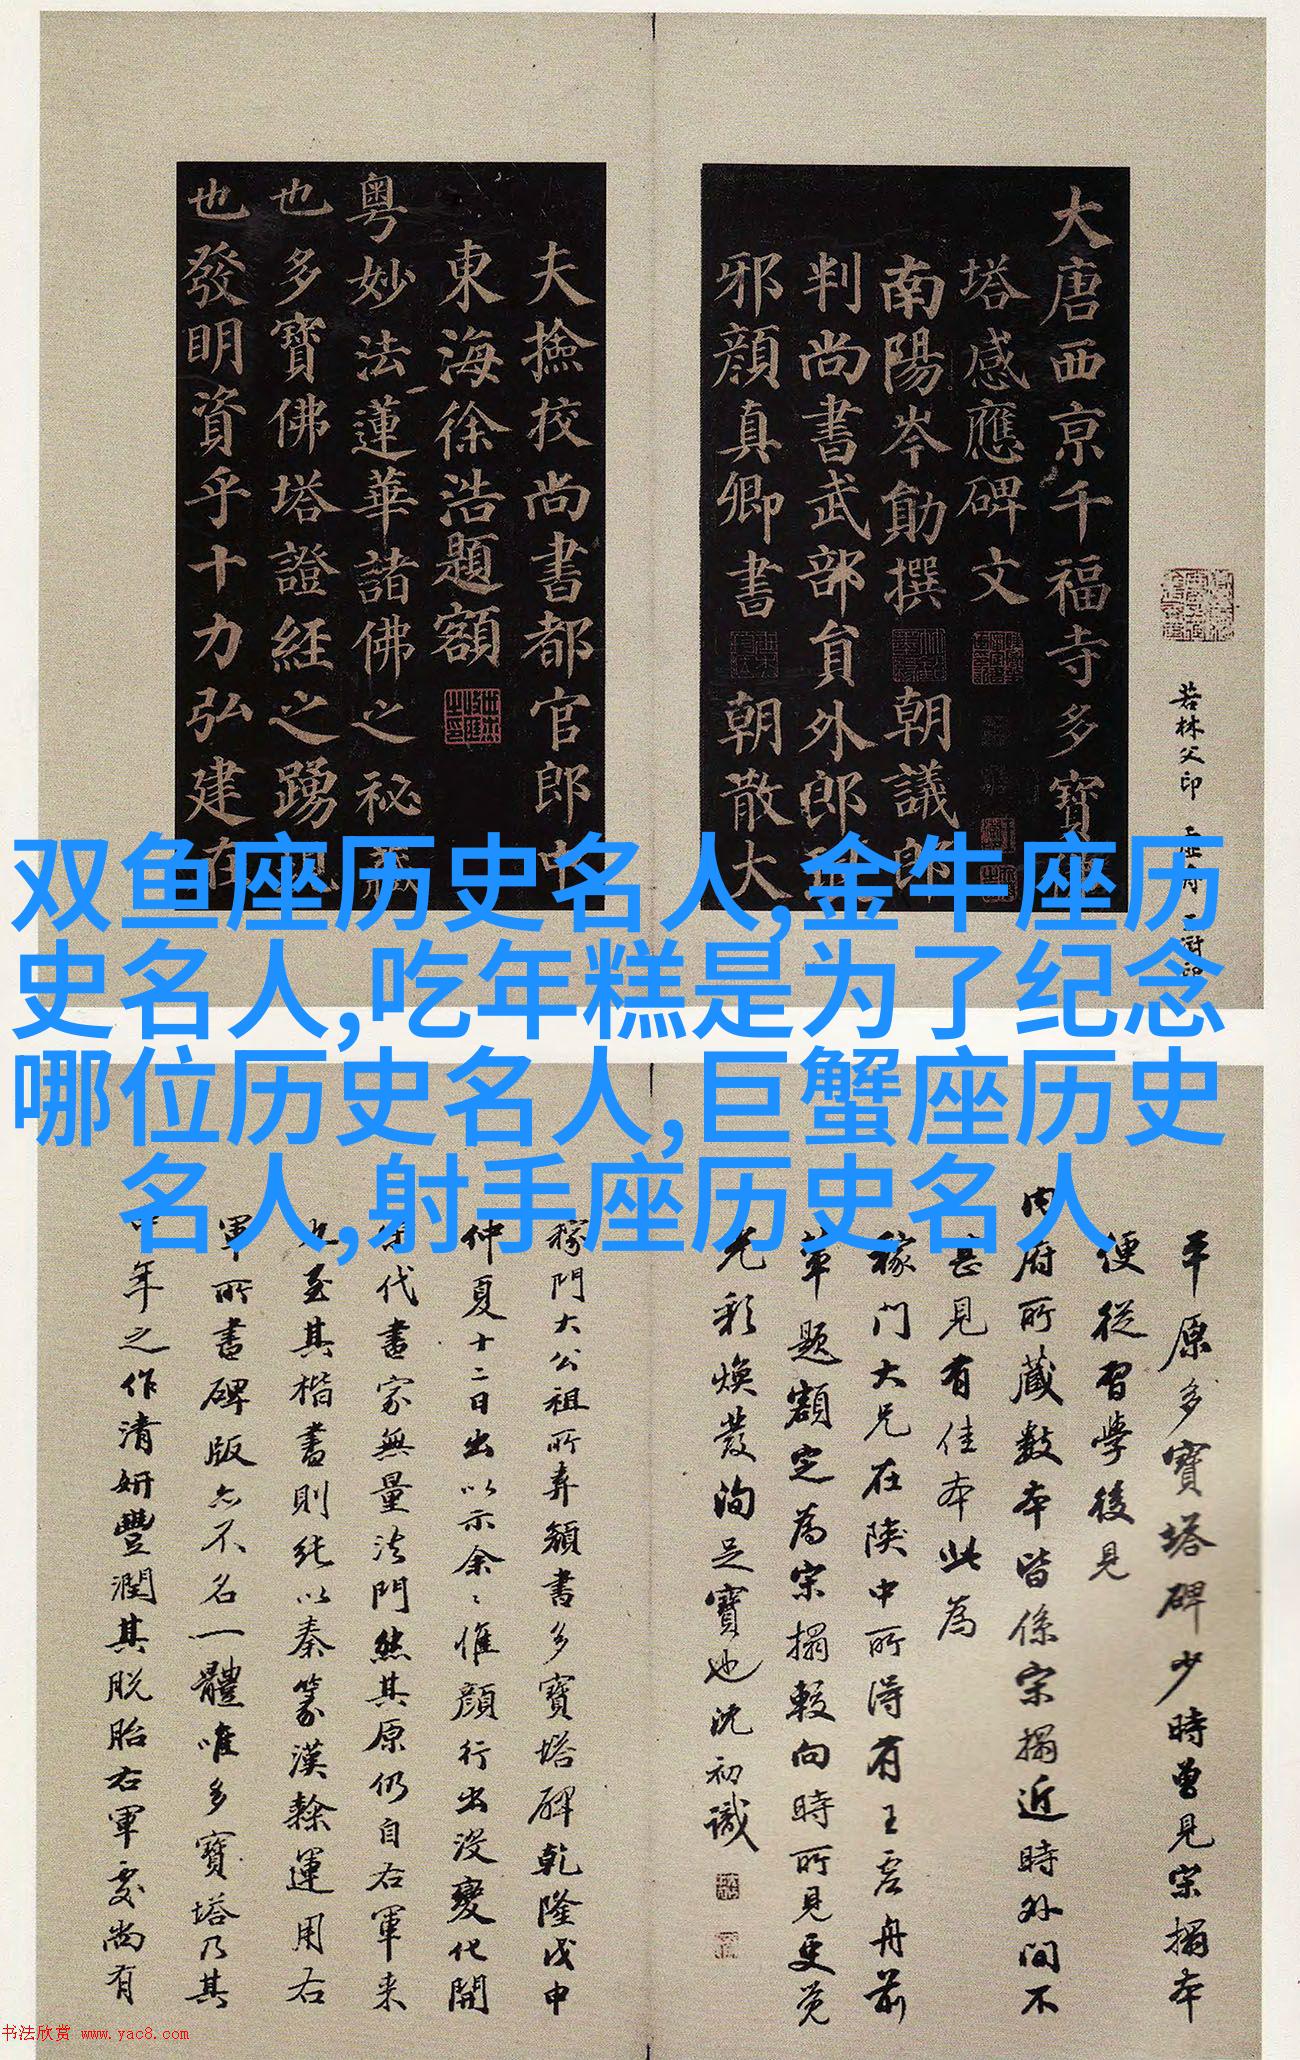 双鱼座历史名人,金牛座历
史名人,吃年糕是为了纪念
哪位历史名人,巨蟹座历史
名人,射手座历史名人
若林父印
大唐西京千福寺多寶
塔感應碑文
南陽岑勛撰 朝議郎
判尚書武部貟外郎
邪顔真卿書 朝散大
夫撿挍尚書都官郎中
東海徐浩題額
粤妙法蓮華諸佛之祕
也多寶佛塔證經之踴
也發明資乎十力弘建在
平原多寶塔碑少時曾見宋搨本
便從習學後見
内府所藏數本皆係宋搨近時外間不
甚見有佳本此為
稼門大兄在陝中所得有王虛舟前
輩題額定為宋搨較向時所見更覺
光彩煥發洵足寶也沈初識
稼門大公祖所弆顏書多寶塔碑乾隆戊申
仲夏十二日出以示余〻惟顏行出没變化開
宋代書家無量法門然其原仍自右軍来
至其楷書則純以秦篆漢隸運用右
軍所書碑版亦不名一體唯多寶塔乃其
中年之作清妍豐潤其脫胎右軍處尚有
书法欣赏 www.yac8.com